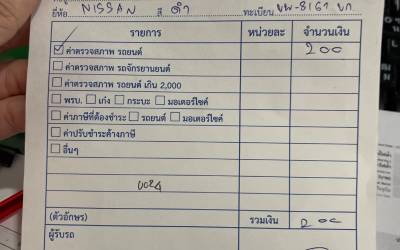 ยี่ห้อ NISSAN สี ดำ ทะเบียน
รายการ หน่วยละ จำนวนเงิน
ค่าตรวจสภาพ รถยนต์ 200
ค่าตรวจสภาพ รถจักรยานยนต์
ค่าตรวจสภาพ รถยนต์ เกิน 2,000
พรบ. เก๋ง กระบะ มอเตอร์ไซค์
ค่าภาษีที่ต้องชำระ รถยนต์ มอเตอร์ไซค์
ค่าปรับชำระล้างภาษี
อื่นๆ
(ตัวอักษร) รวมเงิน 200
ผู้รับรถ